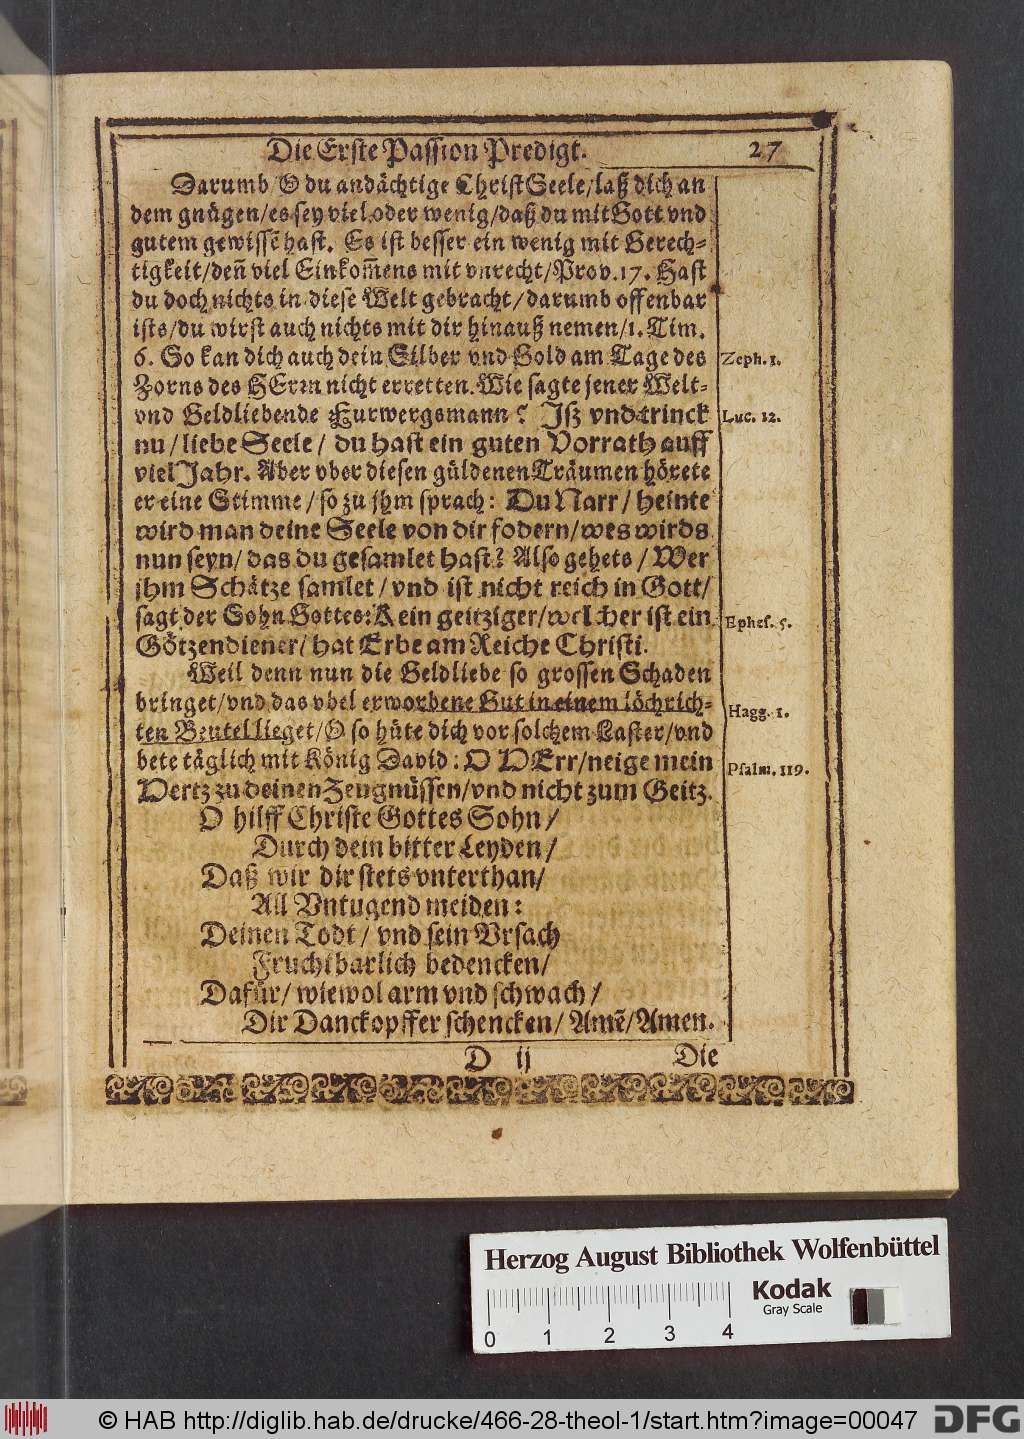 Die Erste Passion Predigt. 27
Darumb / O du andächtige ChristSeele / laß dich an
dem gnügen / es sey viel oder wenig / daß du mit Gott vnd
gutem gewissē hast. Es ist besser ein wenig mit Gerech-
tigkeit / deñ viel Einkom̃ens mit vnrecht / Prov. 17. Hast
du doch nichts in diese Welt gebracht / darumb offenbar
ists / du wirst auch nichts mit dir hinauß nemen / 1. Tim.
6. So kan dich auch dein Silber vnd Gold am Tage des
Zorns des HErrn nicht erretten. Wie sagte jener Welt-
vnd Geldliebende Kurwergsmann? Jß vnd trinck
nu / liebe Seele / du hast ein guten Vorrath auff
viel Jahr. Aber vber diesen güldenen Träumen hörete
er eine Stimme / so zu jhm sprach: Du Narr / heinte
wird man deine Seele von dir fodern / wes wirds
nun seyn / das du gesamlet hast? Also gehets / Wer
jhm Schätze samlet / vnd ist nicht reich in Gott /
sagt der Sohn Gottes: Kein geitziger / welcher ist ein
Götzendiener / hat Erbe am Reiche Christi.
Weil denn nun die Geldliebe so grossen Schaden
bringet / vnd das vbel erworbene Gut in einem löchrich-
ten Beutel lieget / O so hüte dich vor solchem Laster / vnd
bete täglich mit König David: O HErr / neige mein
Hertz zu deinen Zeugnüssen / vnd nicht zum Geitz.
O hilff Christe Gottes Sohn /
Durch dein bitter Leyden /
Daß wir dir stets vnterthan /
All Vntugend meiden:
Deinen Todt / vnd sein Vrsach
Fruchtbarlich bedencken /
Dafür / wiewol arm vnd schwach /
Dir Danckopffer schencken / Amē / Amen.
D ij Die
Zeph. 1.
Luc. 12.
Ephes. 5.
Hagg. 1.
Psalm. 119.
Herzog August Bibliothek Wolfenbüttel
Kodak
Gray Scale
0 1 2 3 4
© HAB http://diglib.hab.de/drucke/466-28-theol-1/start.htm?image=00047
DFG